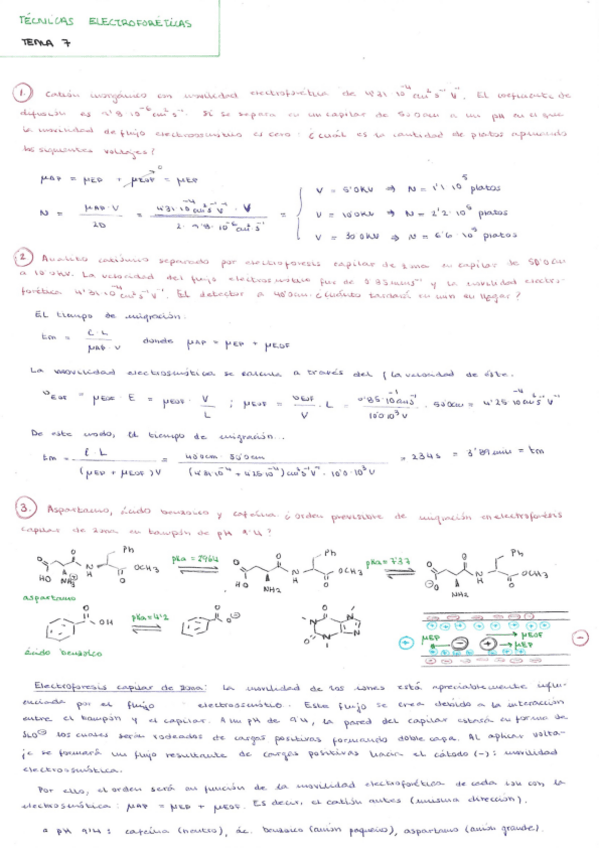 TÉCNICAS ELECTROFORÉTICAS
TEMA 7
1. Catión inorgánico con movilidad electroforética de 4'31·10⁻⁴ cm² s⁻¹ V⁻¹. El coeficiente de
difusión es 9'8·10⁻⁶ cm² s⁻¹. Si se separa en un capilar de 50'0cm a un pH en el que
la movilidad de flujo electroosmótico es cero: ¿cuál es la cantidad de platos aplicando
los siguientes voltajes?
μAP = μEP + μEOF = μEP
0
N = μAP·V / 2D = 4'31·10⁻⁴ cm² s⁻¹ V⁻¹ · V / 2·9'8·10⁻⁶ cm² s⁻¹ =
V = 5'0KV ⇒ N = 1'1·10⁵ platos
V = 10'0KV ⇒ N = 2'2·10⁵ platos
V = 30'0KV ⇒ N = 6'6·10⁵ platos
2 Analito catiónico separado por electroforesis capilar de zona en capilar de 50'0cm
a 10'0KV. La velocidad del flujo electroosmótico fue de 0'85mms⁻¹ y la movilidad electro-
forética 4'31·10⁻⁴ cm² s⁻¹ V⁻¹. El detector a 40'0cm: ¿cuánto tardará en llegar?
El tiempo de migración:
tm = ℓ·L / μAP·V donde μAP = μEP + μEOF
La movilidad electroosmótica se calcula a través de la velocidad de éste.
vEOF = μEOF·E = μEOF·V/L ; μEOF = vEOF/V · L = 0'85·10⁻¹ cm s⁻¹ / 10'0·10³ V · 50'0cm = 4'25·10⁻⁴ cm² s⁻¹ V⁻¹
De este modo, el tiempo de migración...
tm = ℓ·L / (μEP + μEOF)V = 40'0cm·50'0cm / (4'31·10⁻⁴ + 4'25·10⁻⁴) cm² s⁻¹ V⁻¹ · 10'0·10³ V = 234s = 3'89min = tm
3. Aspartamo, ácido benzoico y cafeína ¿orden previsible de migración en electroforésis
capilar de zona en tampón de pH 9'4?
pKa = 2'964
pKa = 7'37
aspartamo
pKa=4'2
ácido benzoico
μEP μEOF
μEP
Electroforesis capilar de zona: La movilidad de los iones está apreciablemente influ-
enciada por el flujo electroosmótico. Este flujo se crea debido a la interacción
entre el tampón y el capilar. A un pH de 9'4, la pared del capilar estará en forma de
SiO⁻ los cuales serán rodeados de cargas positivas formando doble capa. Al aplicar volta-
je se formará un flujo resultante de cargas positivas hacia el cátodo (-): movilidad
electroosmótica.
Por ello, el orden será en función de la movilidad electroforética de cada ion con la
electroosmótica: μAP = μEP + μEOF. Es decir, el catión antes (misma dirección).
a pH 9'4: cafeína (neutro), ác. benzoico (anión pequeño), aspartamo (anión grande).